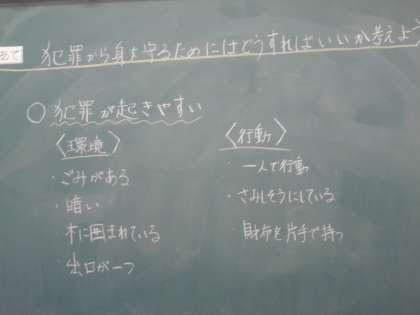 めあて
犯罪から身を守るためにはどうすればいいか考えよう
○犯罪が起きやすい
〈環境〉
・ごみがある
・暗い
木に囲まれている
・出口が一つ
〈行動〉
・一人で行動
・さみしそうにしている
・財布を片手で持つ